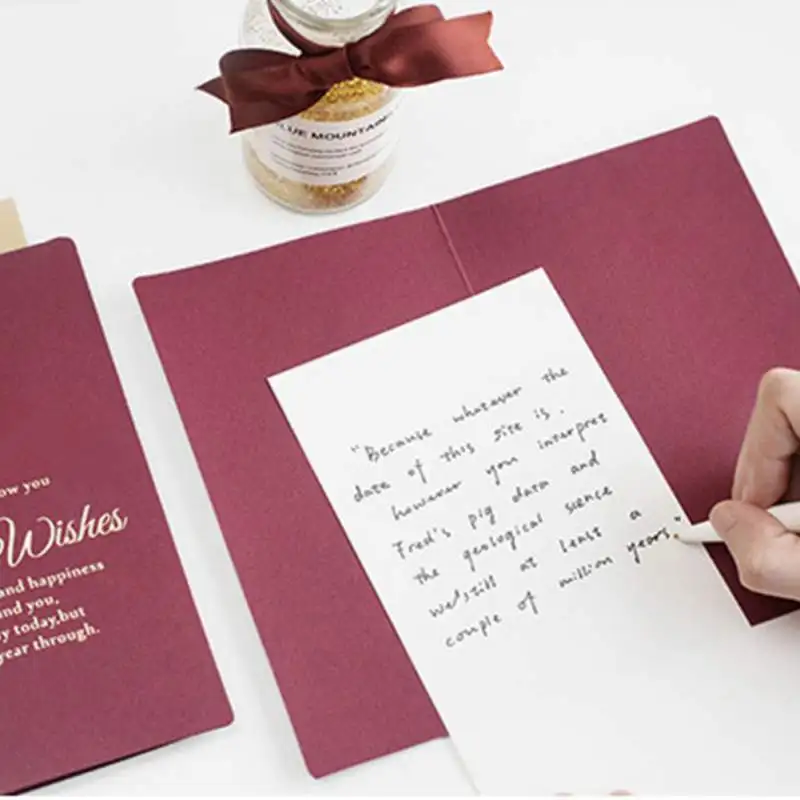 LUE MOUNTAIN
ow you
Wishes
and happiness
nd you,
y today,but
year through.
"Because whatever the
date of this site is.
however you interpret
Fred's pig data and
the geological sience
we'still at least a
couple of million years."